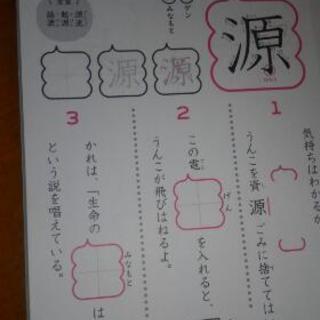 源
ゲン
みなもと
源
源
1
気持ちはわかるが
うんこを資源ごみに捨てては
2
この電げんを入れると、
うんこが飛びはねるよ。
3
かれは、「生命のみなもとは
という説を唱えている。